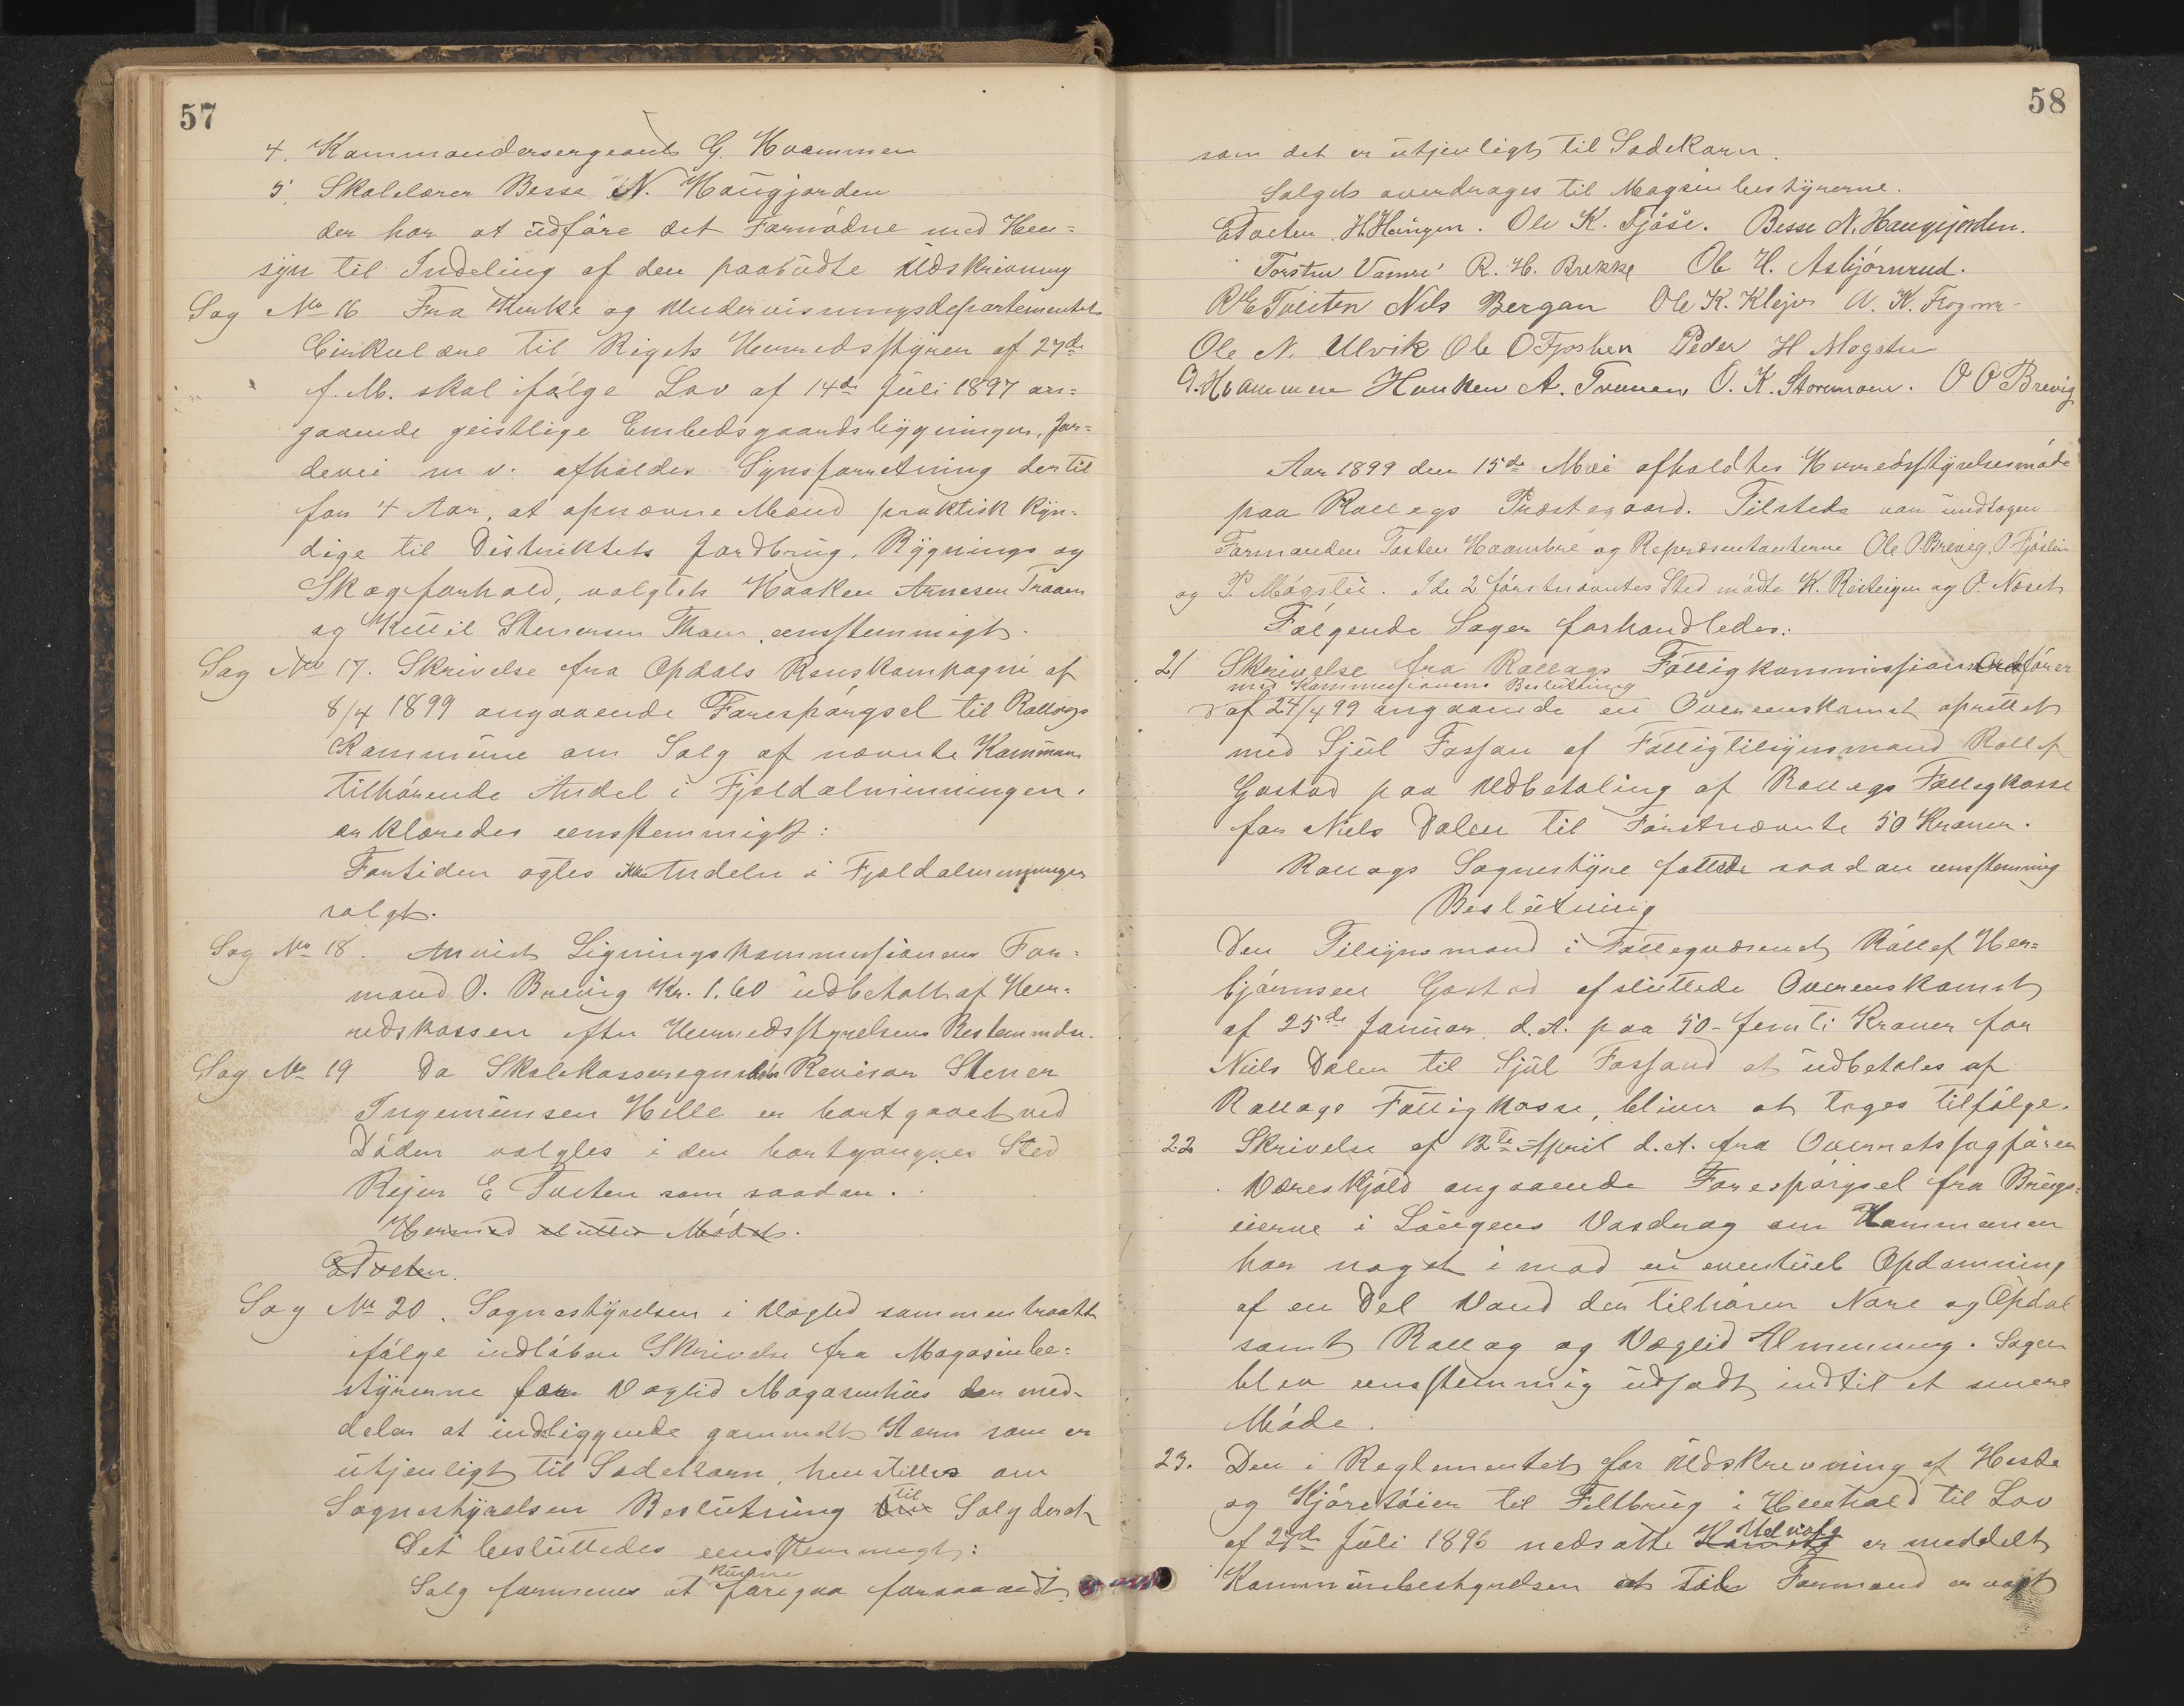 57
4. Kommandersergeant G. Hvammen
5. Skolelærer Besse N. Haugjorden
der har at udføre det Fornødne med Hen=
syn til Indeling af den paabudte Udskrivning
Sag No 16 Fra Kirke og Undervisningsdepartementets
Cirkulære til Rigets Herredsstyrer af 27de
f. M. skal ifølge Lov af 14de Juli 1897 an=
gaaende geistlige Embedsgaardsbygninger, Jor=
deveie m v. afholdes Synsforretning der til
for 4 Aar, at opnævne Mænd praktisk kyn=
dige til Distriktets Jordbrug, Bygnings og
Skogforhold, valgtes Haaken Arnesen Traaen
og Kittil Stenersen Thoen eenstemmigt.
Sag No 17. Skrivelse fra Opdals Renskompagni af
8/4 1899 angaaende Forespørgsel til Rollags
Kommune om Salg af nævnte Kommune
tilhørende Andel i Fjeldalminningen.
erklæredes eenstemmigt:
Fortiden agtes ikke Andelen i Fjeldalminningen
solgt.
Sag No 18. Anvist Ligningskommissionens For=
mand O. Brevig Kr. 1.60 udbetalt af Her=
redskassen efter Herredsstyrelsens Bestemmelse.
Sag No 19 Da Skolekasseregnskabs Revisor Stener
Ingemunsen Helle er bortgaaet ved
Døden valgtes i den bortgangnes Sted
Rejer E Tveten som saadan.
Hermed sluttes Mødet.
E Tveten.
Sag No 20. Sognestyrelsen i Veglid sammentraadte
ifølge indløben Skrivelse fra Magasinbe=
styrerne for Veglid Magasinhus der med=
deler at indliggende gammelt Korn som er
utjenligt til Sædekorn, henstilles om
Sognestyrelsen Beslutning til Salg deraf
Det besluttedes eenstemmigt:
kunne
Salg formenes at foregaa forsaavidt
58
som det er utjenligt til Sædekorn.
Salget overdrages til Magsinbestyrerne.
E Tveten H. Haugen. Ole K. Fjøse. Besse N. Haugjorden.
Torsten Vamre R. H. Brekke Ole H. Asbjørnrud.
R E Tveiten Nils Bergan Ole K. Klejv A. K. Frogner
Ole N. Ulvik Ole O Fjoslien Peder H Mogsteu
G. Hvammen Haaken A. Traaen O. K. Stormoen. O O Brevig
Aar 1899 den 15de Mai afholdtes Herredsstyrelsesmøde
paa Rollags Præstegaard. Tilstede var undtagen
Formanden Tosten Hvambre og Repræsentanterne Ole O. Brevig, O Fjøslien
og P. Møgsteu. I de 2 førstnævntes Sted mødte K. Reisteigen og O. Næset
Følgende Sager forhandledes:
21 Skrivelse fra Rollags Fattigkommissions Ordfører
med Kommissionens Beslutning
af 24/4 99 angaaende en Overenskomst oprettet
med Sjul Fossan af Fattigtilsynsmand Rollef
Gostad paa Udbetaling af Rollags Fattigkasse
for Niels Dalen til Førstnævnte 50 Kroner.
Rollags Sognestyre fattede saadan eenstemmig
Beslutning
Den Tilsynsmand i Fattegvæsenet Rollef Her=
bjørnsen Gostad afsluttede Overenskomst
af 25de Januar d. A. paa 50 - femti Kroner for
Niels Dalen til Sjul Fossand at udbetales af
Rollags Fattigkasse, bliver at tages tilfølge.
22 Skrivelse af 12te April d. A. fra Overretssagfører
Væreskjold angaaende Forespørgsel fra Brugs=
eierne i Laagens Vasdrag om Kommunen
har noget imod en eventuel Opdamning
af en Del Vand der tilhører Nore og Opdal
samt Rollag og Veglid Almenning. Sagen
blev eenstemmig udsadt indtil et senere
Møde.
23. Den i Reglementet for Udskrevning af Heste
og Kjøretøier til Feltbrug i Henhold til Lov
Udvalg
af 27de Juli 1896 nedsatte er meddelt
Kommunbestyrelsen at til Formand er valgt